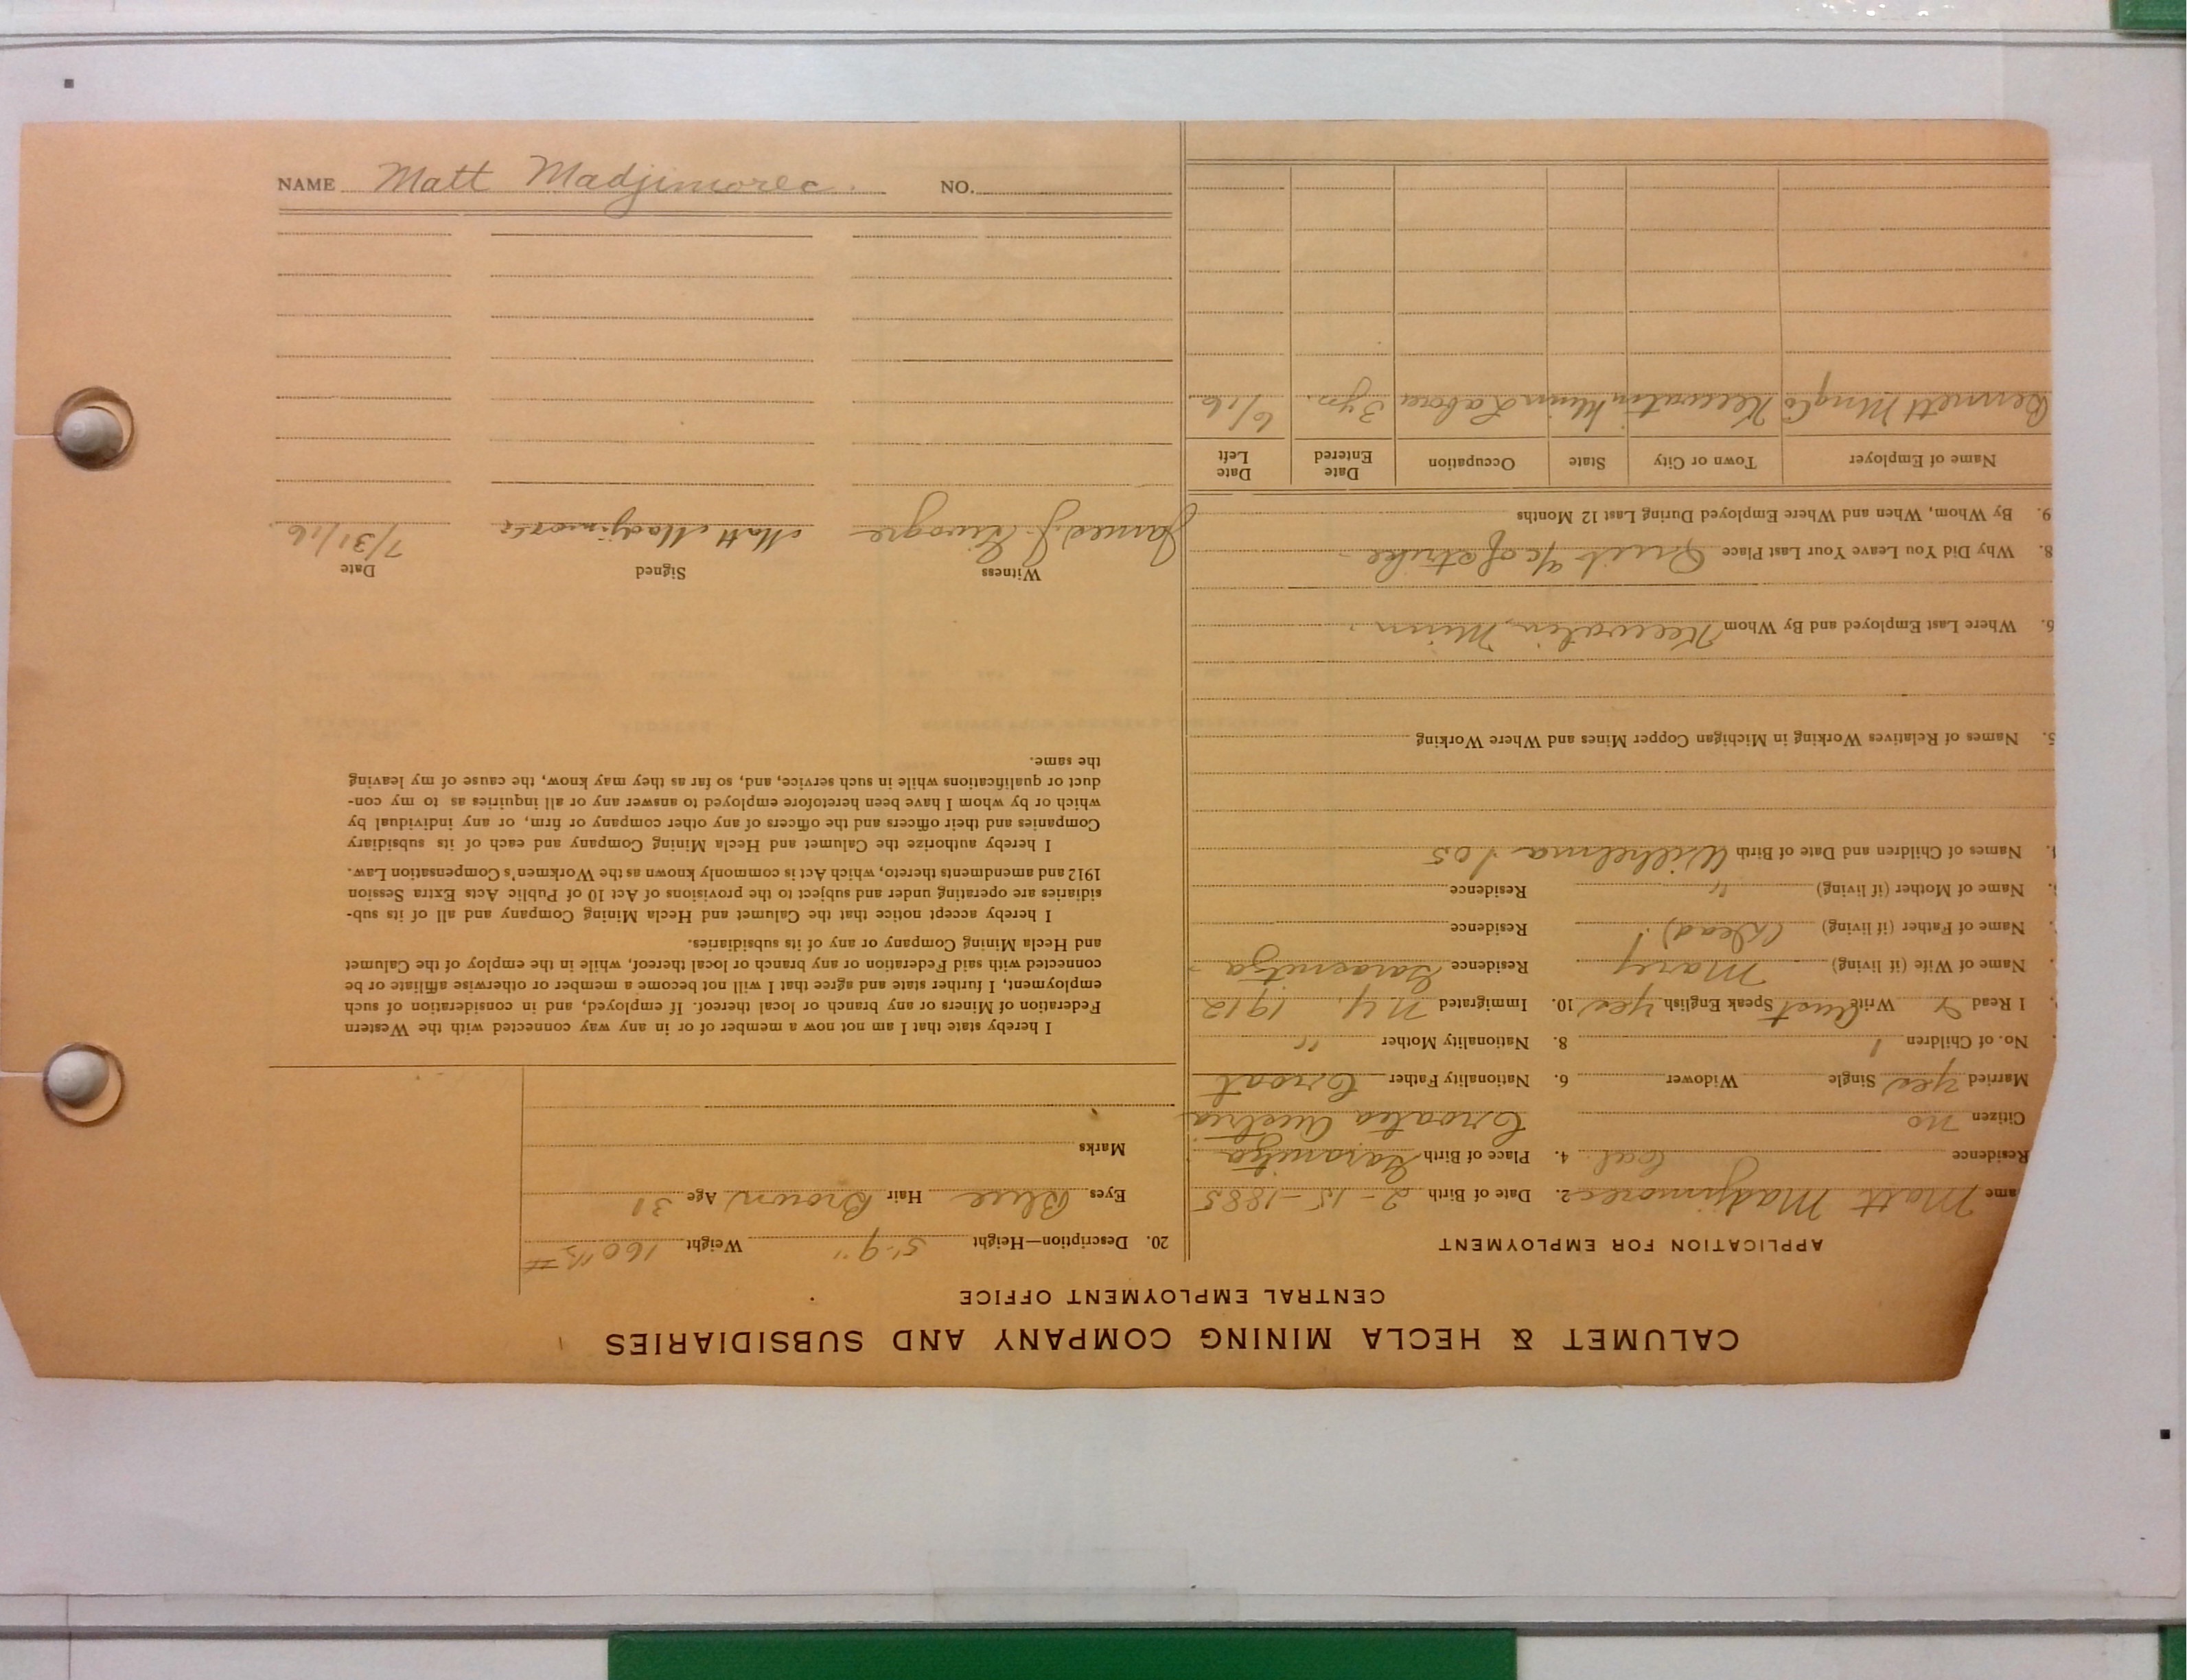 NAME Matt Madjimorec. NO.
CALUMET & HECLA MINING COMPANY AND SUBSIDIARIES
CENTRAL EMPLOYMENT OFFICE
APPLICATION FOR EMPLOYMENT
ame Matt Madjimorec 2. Date of Birth 2-15-1885
Residence local. 4. Place of Birth
Citizen no Croatia Austria
Married yes Single Widower 6. Nationality Father Croat
No. of Children 1 8. Nationality Mother "
1 Read Write Aust Speak English yes 10. Immigrated N.Y. 1912
Name of Wife (if living) Mary Residence
Name of Father (if living) (dead) Residence
Name of Mother (if living) " Residence
Names of Children and Date of Birth Wilhelma 1 05
5. Names of Relatives Working in Michigan Copper Mines and Where Working
6. Where Last Employed and By Whom Keewatin, Minn.
8. Why Did You Leave Your Last Place Quit a/c of strike
9. By Whom, When and Where Employed During Last 12 Months
Name of Employer Town or City State Occupation Date Entered Date Left
Bennett Mng Co Keewatin Minn Laborer 3 yrs. 6/16
20. Description—Height 5'-9" Weight 160 #
Eyes Blue Hair Brown Age 31
Marks
I hereby state that I am not now a member of or in any way connected with the Western
Federation of Miners or any branch or local thereof. If employed, and in consideration of such
employment, I further state and agree that I will not become a member or otherwise affiliate or be
connected with said Federation or any branch or local thereof, while in the employ of the Calumet
and Hecla Mining Company or any of its subsidiaries.
I hereby accept notice that the Calumet and Hecla Mining Company and all of its sub-
sidiaries are operating under and subject to the provisions of Act 10 of Public Acts Extra Session
1912 and amendments thereto, which Act is commonly known as the Workmen's Compensation Law.
I hereby authorize the Calumet and Hecla Mining Company and each of its subsidiary
Companies and their officers and the officers of any other company or firm, or any individual by
which or by whom I have been heretofore employed to answer any or all inquiries as to my con-
duct or qualifications while in such service, and, so far as they may know, the cause of my leaving
the same.
Witness Signed Date
James J. Matt Madjimorec 7/31/16